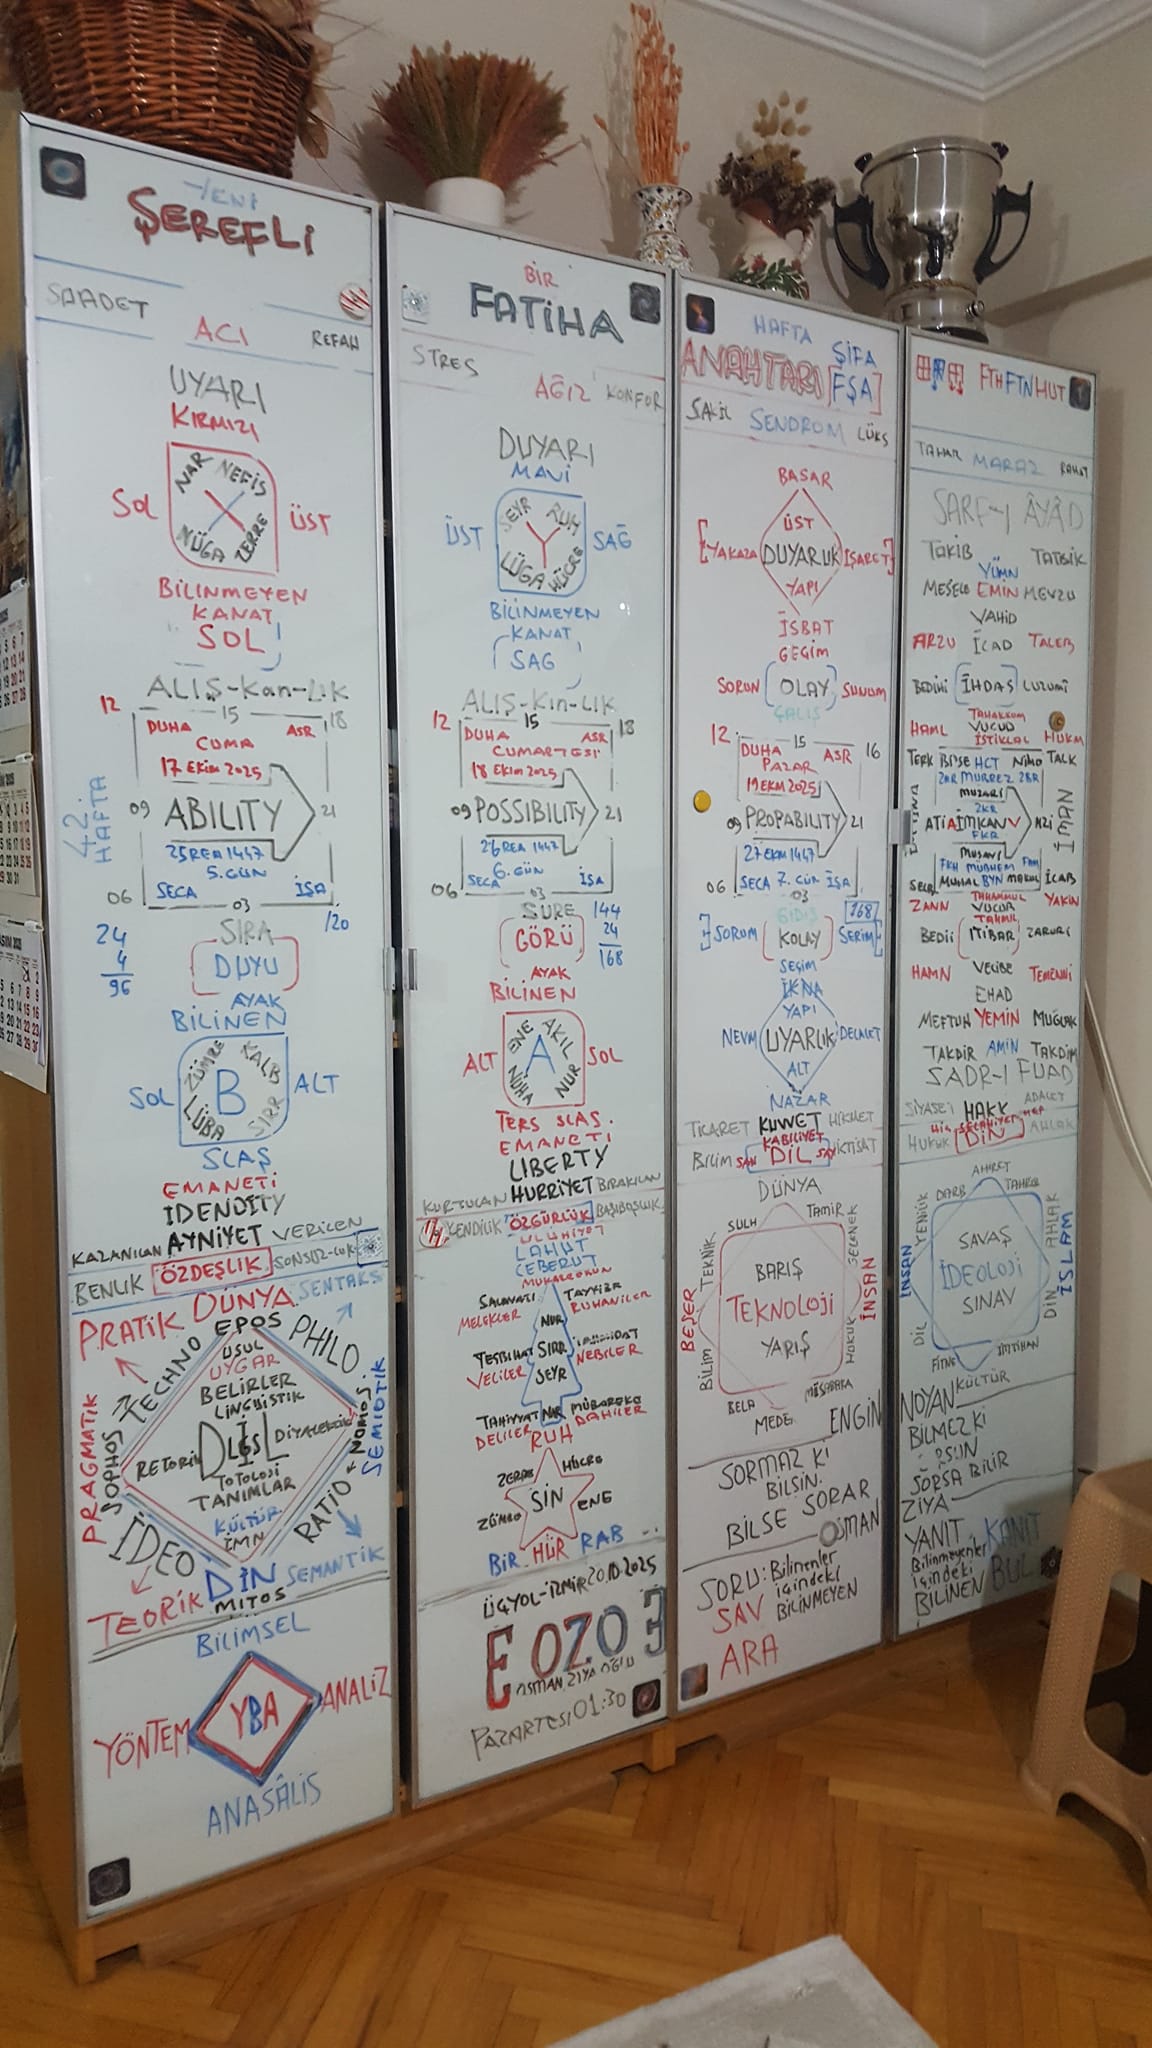 YENİ
ŞEREFLİ
SAADET
ACI
REFAH
UYARI
KIRMIZI
NAR NEFİS
SOL
ÜST
NÜGA ZERRE
BİLİNMEYEN
KANAT
SOL
ALIŞ-Kan-LIK
12
15
18
DUHA
ASR
CUMA
17 EKİM 2025
42
HAFTA
09
ABILITY
21
25 REA 1447
5. GÜN
06
SECA
İŞA
03
/20
24
4
96
SIRA
DUYU
AYAK
BİLİNEN
ZÜMRE KALB
SOL
B
ALT
LÜBA SIRR
SLAŞ
EMANETİ
IDENDITY
KAZANILAN AYNİYET VERİLEN
BENLIK ÖZDEŞLIK SONSUZ-LUK
PRATİK DÜNYA SENTAKS
TECHNO EPOS PHILO
USUL
UYGAR
BELİRLER
LİNGÜİSTİK
PRAGMATİK
SOPHOS
RETORİK
DİYALEKTİK
NOMOS
SEMİOTİK
TOTOLOJİ
TANIMLAR
KÜLTÜR
İMN
İDEO
RATIO
TEORİK DİN SEMANTİK
MITOS
BİLİMSEL
YÖNTEM
YBA
ANALİZ
ANASÂLİS
BİR
FATİHA
STRES
AĞIZ
KONFOR
DUYARI
MAVİ
SEYR RUH
ÜST
SAĞ
LÜGA HÜCRE
BİLİNMEYEN
KANAT
SAĞ
ALIŞ-Kin-LIK
12
15
18
DUHA
ASR
CUMARTESİ
18 EKİM 2025
09
POSSIBILITY
21
26 REA 1447
6. GÜN
06
SECA
İŞA
03
SURE
GÖRÜ
144
24
168
AYAK
BİLİNEN
ENE AKIL
ALT
A
SOL
NÜHA NUR
TERS SLAŞ
EMANETİ
LIBERTY
KURTULAN HÜRRİYET BIRAKILAN
KENDİLİK ÖZGÜRLÜK BAŞIBOŞLUK
ULUHİYET
LAHUT
CEBERUT
SALAVATI
TAYYİBE
MELEKLER
NUR
RUHANİLER
TESBİHAT
SIRR
VELİLER
SEYR
NEBİLER
TAHİYYAT
NAR
MÜBAREKE
DELİLER
DAHİLER
RUH
ZERRE
HÜCRE
SİN
ZÜMRE
ENE
BİR HÜR RAB
ÜÇYOL-İZMİR 20.10.2025
E OZO 3
OSMAN ZİYAOĞLU
PAZARTESİ 01:30
HAFTA
ŞİFA
ANAHTARI [FŞA]
SAKİL
SENDROM
LÜKS
BASAR
ÜST
[YAKAZA DUYARUK İŞARET]
YAPI
İSBAT
GEÇİM
SORUN [OLAY] SUNUM
ÇALIŞ
12
15
16
DUHA
ASR
PAZAR
19 EKM 2025
09
PROPABILITY
21
27 EKM 1447
06
SECA 7. GÜN İŞA
03
GİDİŞ
168
SORUM KOLAY SERİM
SEÇİM
İKNA
YAPI
NEVM UYARUK DELALET
ALT
NAZAR
TİCARET KUVVET HİKMET
KABİLİYET
BİLİM SAN DİL SAY İKTİSAT
DÜNYA
SULH
TAMİR
TEKNİK
GELENEK
BARIŞ
BEŞER
TEKNOLOJİ
İNSAN
YARIŞ
BİLİM
HUKUK
BELA
MÜSABAKA
MEDE
ENGİN
SORMAZ Kİ
BİLSİN.
BİLSE SORAR
OSMAN
SORU: Bilinenler
içindeki
SAV BİLİNMEYEN
ARA
FTHFTNHUT
TAHAR
MARAZ
RAHAT
SARF-I ÂYÂD
TAKİB
TATBİK
YÜMN
MESELE EMİN MEVZU
VAHİD
ARZU İCAD TALEB
BEDİHİ İHDAS LUZUMİ
TAHAKKUM
HAML
VÜCUD
HUKM
İSTİKLAL
TERK BİLSE HCT NİMO TALK
2KR MÜRREZ 2BR
MUZARİ
2KR
İMKAN
FKR
İMAN
FKH MÜBHEM
BYN
İCAB
ZANN
TAHAMMUL
YAKİN
VUCUB
TAHMİL
BEDİİ İTİBAR ZARURİ
HAMN VECİBE TEMENNİ
EHAD
MEFTUN YEMİN MUĞLAK
TAKDİR AMİN TAKDİM
SADR-I FUAD
SİYASET HAKK ADALET
HUKUK DİN AHLAK
AHİRET
DARB
TAHRİB
YENLİK
AHLAK
SAVAŞ
İNSAN
İDEOLOJİ
İSLAM
SINAV
DİL
DİN
FİTNE
İMTİHAN
KÜLTÜR
NOYAN
BİLMEZ Kİ
SORSUN
SORSA BİLİR
ZİYA
YANIT KANIT
Bilinmeyenler
içindeki
BİLİNEN BUL